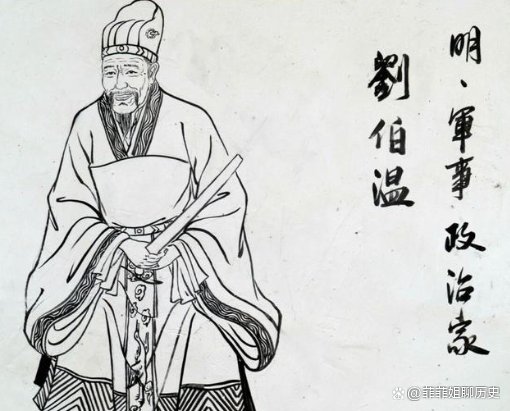 明、軍事政治家
劉伯温
@菲菲姐聊历史